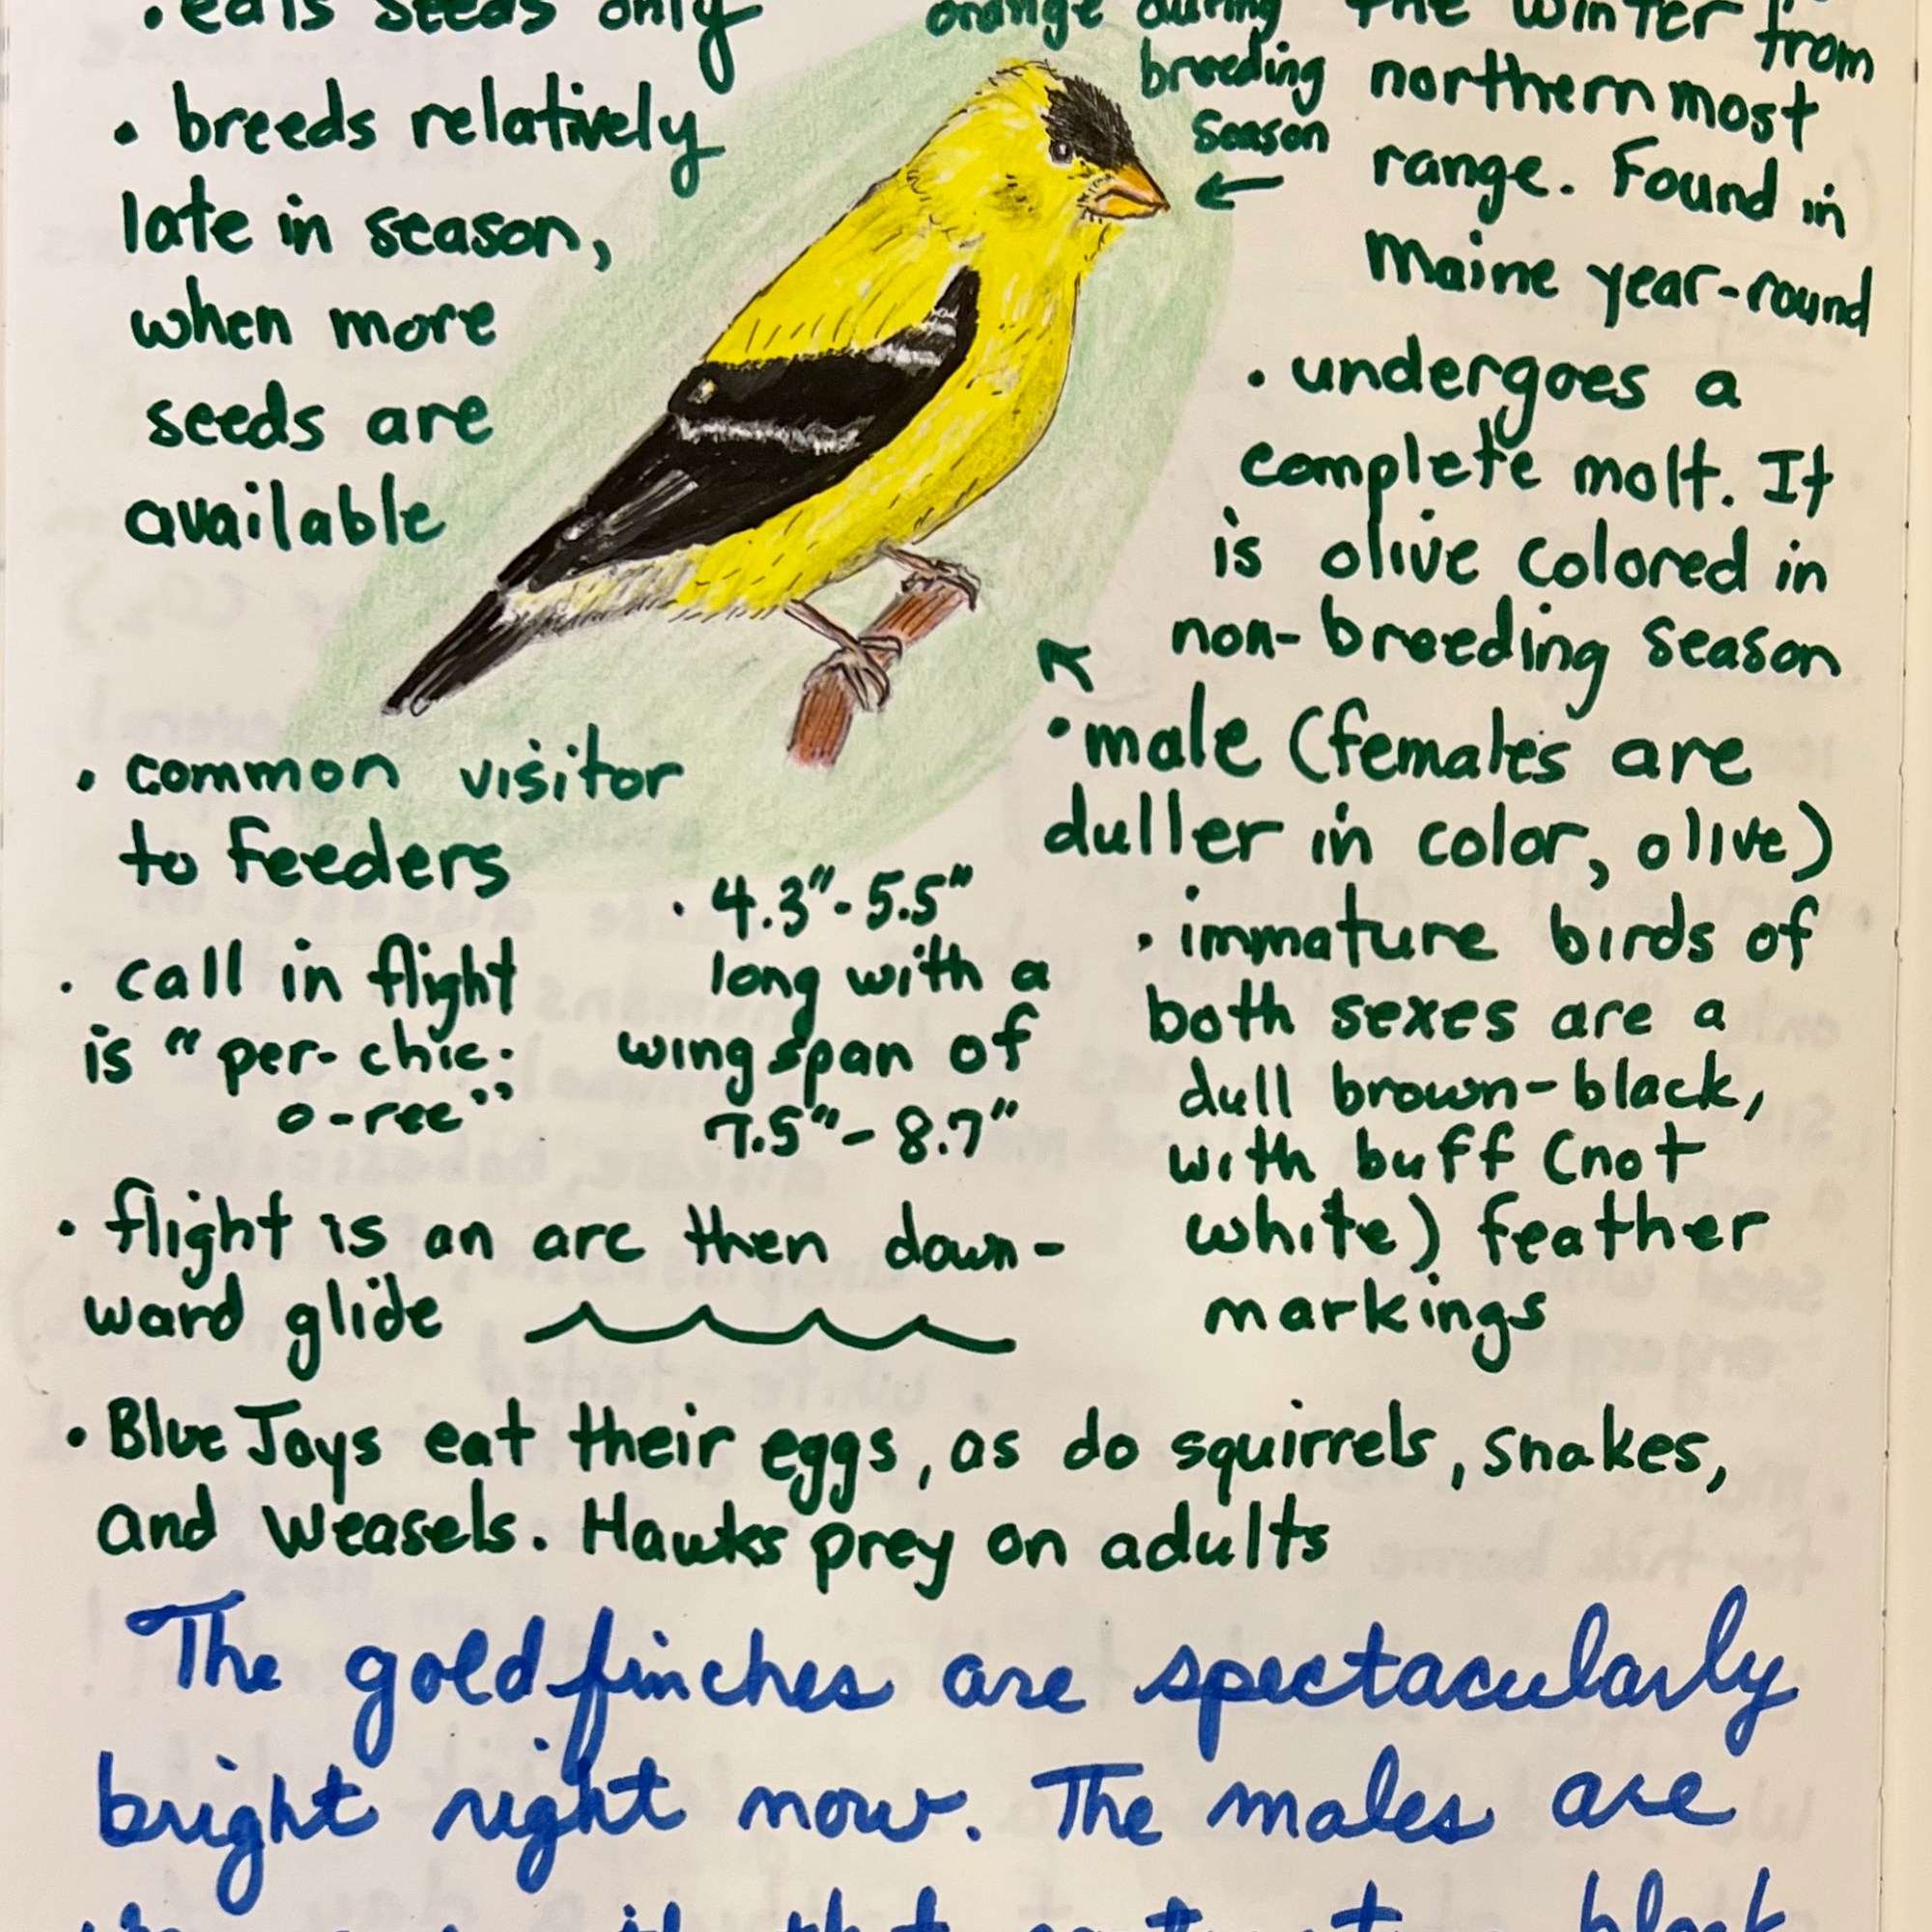 • eats seeds only
• breeds relatively
late in season,
when more
seeds are
available
orange during
breeding
season
the winter from
northern most
range. Found in
Maine year-round
• undergoes a
complete molt. It
is olive colored in
non-breeding season
• male (females are
duller in color, olive)
• immature birds of
both sexes are a
dull brown-black,
with buff (not
white) feather
markings
• common visitor
to feeders
• call in flight
is "per-chic-
o-ree"
• 4.3"-5.5"
long with a
wingspan of
7.5"-8.7"
• flight is an arc then down-
ward glide
• Blue Jays eat their eggs, as do squirrels, snakes,
and weasels. Hawks prey on adults
The goldfinches are spectacularly
bright right now. The males are
black